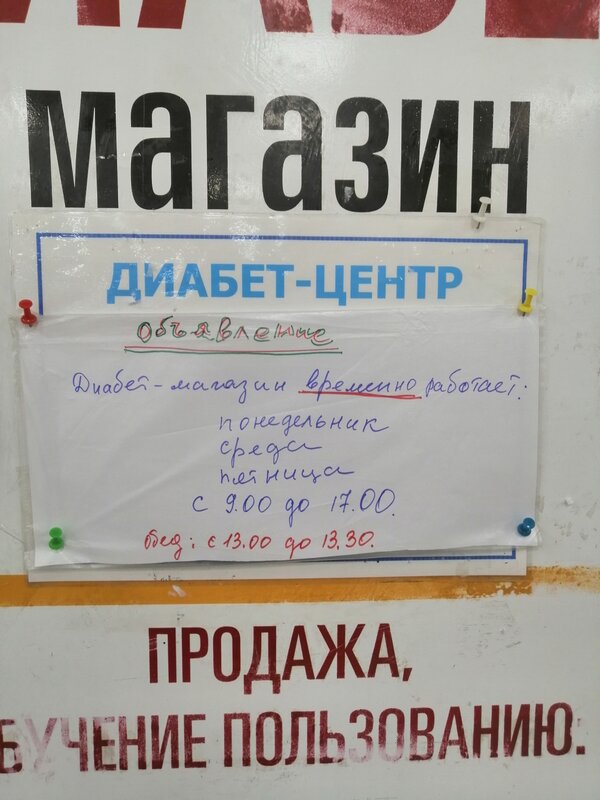 магазин
ДИАБЕТ-ЦЕНТР
Объявление
Диабет-магазин временно работает:
понедельник
среда
пятница
с 9.00 до 17.00.
обед: с 13.00 до 13.30.
ПРОДАЖА,
БУЧЕНИЕ ПОЛЬЗОВАНИЮ.